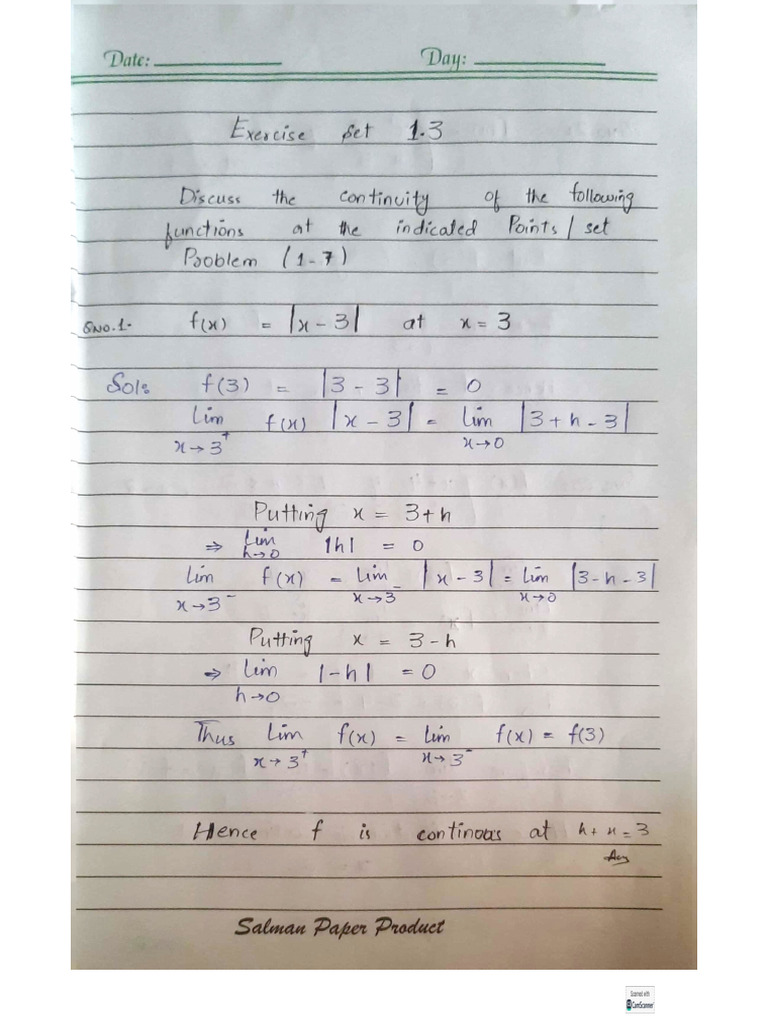 Date: Day:
Exercise set 1.3
Discuss the continuity of the following
functions at the indicated Points / set
Problem (1-7)
QNO.1- f(x) = |x - 3| at x = 3
Sol: f(3) = |3 - 3| = 0
Lim x→3⁺ f(x) |x - 3| = Lim x→0 |3 + h - 3|
Putting x = 3+h
⇒ Lim h→0 |h| = 0
Lim x→3⁻ f(x) = Lim x→3⁻ |x - 3| = Lim x→0 |3 - h - 3|
Putting x = 3-h
⇒ Lim h→0 |-h| = 0
Thus Lim x→3⁺ f(x) = Lim x→3⁻ f(x) = f(3)
Hence f is continous at h+ x = 3
Ans
Salman Paper Product
Scanned with
CamScanner